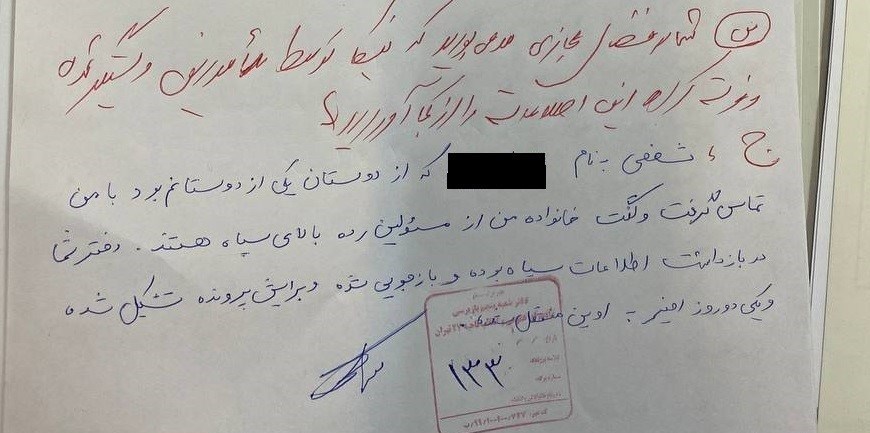 س شما در فضای مجازی مدعی بودید که نیکا توسط مأمورین دستگیر شده
و فوت کرده این اطلاعات را از کجا آوردید؟
ج ، شخصی به نام که از دوستان یکی از دوستانم بود با من
تماس گرفت و گفت خانواده من از مسئولین رده بالای سپاه هستند. دختر شما
در بازداشت اطلاعات سپاه بوده و بازجویی شده و برایش پرونده تشکیل شده
و یکی دو روز اخیر به اوین منتقل شده
تهران
۱۳۳۰